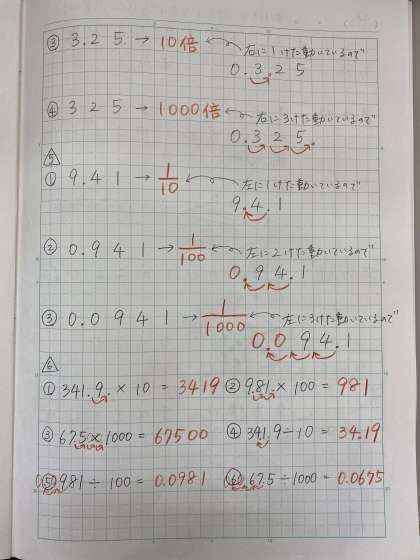 ③ 3.25 → 10倍 右に1けた動いているので"
0.3.25
④ 325 → 1000倍 右に3けた動いているので"
0.325.
⑤
① 9.41 → 1/10 左に1けた動いているので"
9.4.1
② 0.941 → 1/100 左に2けた動いているので"
0.94.1
③ 0.0941 → 1/1000 左に3けた動いているので"
0.094.1
⑥
① 341.9. × 10 = 3419 ② 9.81. × 100 = 981
③ 67.5 × 1000 = 67500 ④ 341.9 ÷ 10 = 34.19
⑤ 9.81 ÷ 100 = 0.0981 ⑥ 67.5 ÷ 1000 = 0.0675